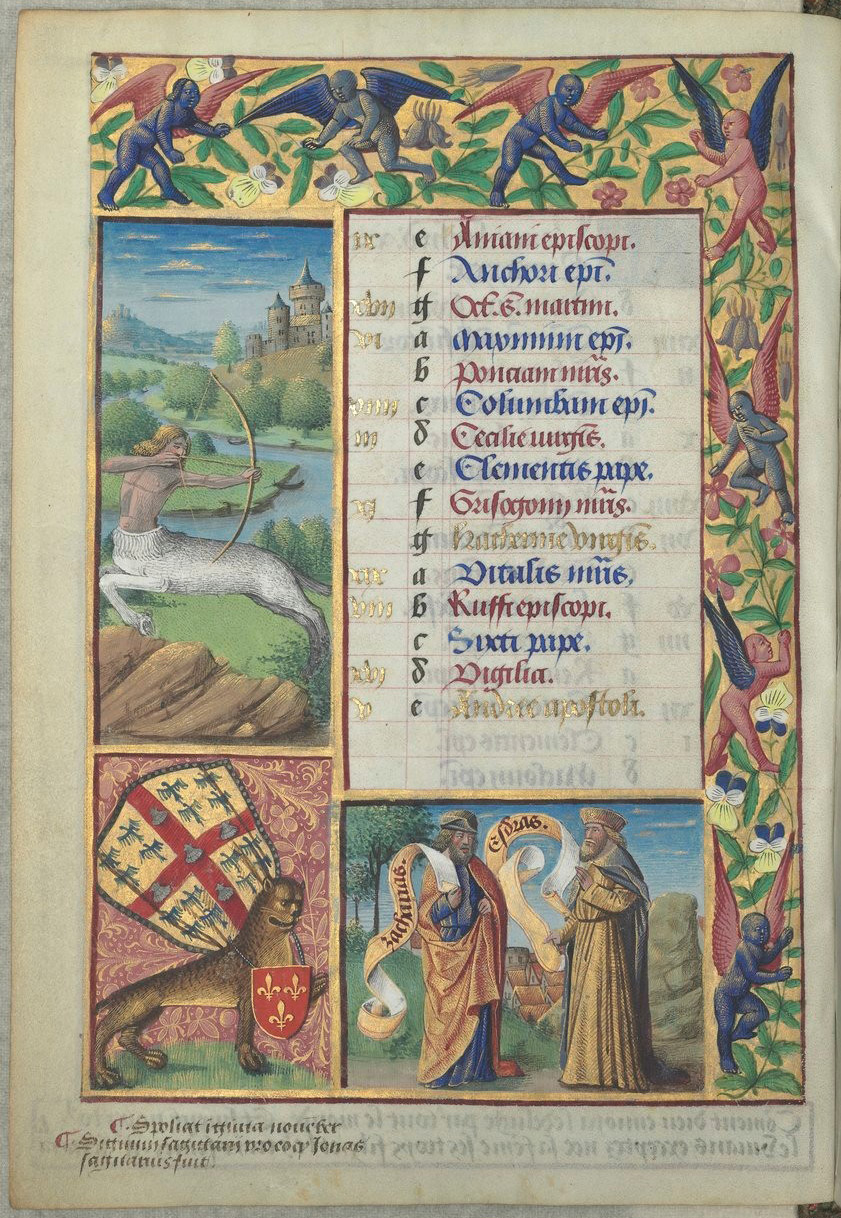 ix e Aniani episcopi.
f Anchori epi.
xvii g Oct. S. martini.
vi a Maximini epi.
b Ponciani mris.
xiiii c Columbani epi.
iii d Cecilie virgis.
e Clementis pape.
xi f Grisogoni mris.
g Katherine virgis.
xix a Vitalis mris.
viii b Ruffi episcopi.
c Sixti pape.
xvi d Vigilia.
v e Andree apostoli.
zacharias.
Esdras.
Spoliat
Signum sagittarii
sagittarius fuit